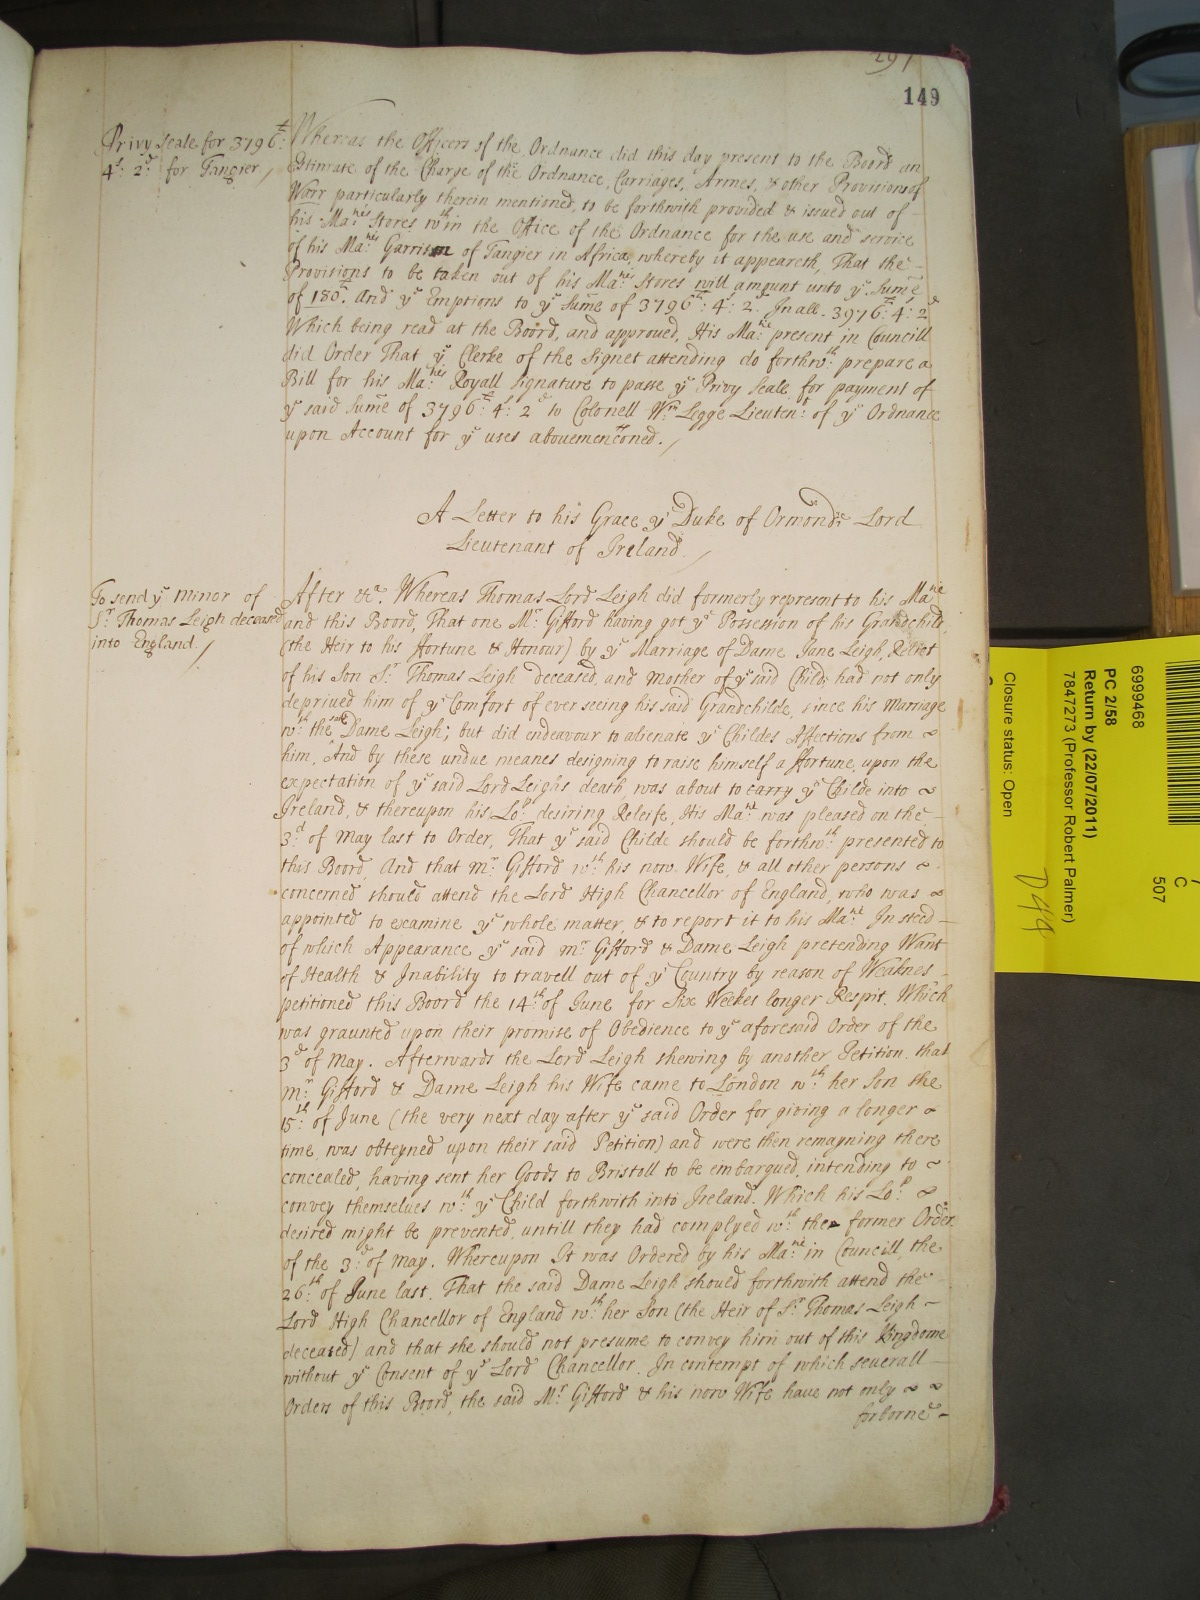 297
149
Privy Seale for 3796£:
4s: 2d: for Tangier /
Whereas the Officers of the Ordnance did this day present to the Board an
Estimate of the Charge of the Ordnance, Carriages, Armes, & other Provisions of
Warr particularly therein mentioned, to be forthwith provided & issued out of -
his Ma:ties Stores wth in the Office of the Ordnance for the use and service
of his Ma:ties Garrison of Tangier in Africa, whereby it appeareth, That the -
Provisions to be taken out of his Ma:ties Stores will amount unto ye Sume
of 180£. And ye Emptions to ye Sume of 3796£: 4s: 2d In all. 3976£: 4s: 2d
Which being read at the Board, and approved, His Ma:tie present in Councill
did Order That ye Clerke of the Signet attending do forthwth: prepare a
Bill for his Ma:ties Royall Signature to passe ye Privy Seale for payment of
ye said Sume of 3796£: 4s: 2d to Colonell Wm: Legge Lieutent: of ye Ordnance
upon Account for ye uses abovemencõned. /
A Letter to his Grace ye Duke of Ormonde Lord
Lieutenant of Ireland. /
To send ye Minor of
Sr. Thomas Leigh deceased
into England. /
After &c. Whereas Thomas Lord Leigh did formerly represent to his Ma:tie
and this Board, That one Mr Gifford having got ye Possession of his Grandchild
(the Heir to his ffortune & Honour) by ye Marriage of Dame Jane Leigh, Relict
of his Son Sr Thomas Leigh deceased, and Mother of ye said Child, had not only
deprived him of ye Comfort of ever seeing his said Grandchilde, since his Marriage
wth the said Dame Leigh; but did endeavour to alienate ye Childes Affections from ~
him, And by these undue meanes designing to raise himself a ffortune, upon the
expectation of ye said Lord Leighs death, was about to carry ye Childe into ~
Ireland, & thereupon his Lop desiring Releife, His Ma:tie was pleased on the -
3d: of May last to Order, That ye said Childe should be forthwth: presented to
this Board, And that Mr: Gifford wth: his now Wife, & all other persons ~
concerned should attend the Lord High Chancellor of England, who was ~
appointed to examine ye whole matter, & to report it to his Ma:tie In steed -
of which Appearance ye said Mr: Gifford & Dame Leigh pretending Want
of Health & Inability to travell out of ye Country by reason of Weaknes -
petitioned this Board the 14th: of June for Six Weekes longer Respit. Which
was graunted upon their promise of Obedience to ye aforesaid Order of the
3d of May. Afterwards the Lord Leigh shewing by another Petition that
Mr: Gifford & Dame Leigh his Wife came to London wth: her Son the
15th: of June (the very next day after ye said Order for giving a longer ~
time, was obteyned upon their said Petition) and were then remayning there
concealed, having sent her Goods to Bristoll to be embargued, intending to ~
convey themselves wth: ye Child forthwith into Ireland. Which his Lop: ~
desired might be prevented, untill they had complyed wth: the former Order
of the 3d: of May. Whereupon It was Ordered by his Ma:tie in Councill, the
26th: of June last, That the said Dame Leigh should forthwith attend the
Lord High Chancellor of England wth: her Son (the Heir of Sr Thomas Leigh -
deceased) and that she should not presume to convey him out of this Kingdome
without ye Consent of ye Lord Chancellor. In contempt of which severall -
Orders of this Board, the said Mr Gifford & his now Wife have not only ~ ~
forborne -
6999468
PC 2/58
Return by (22/07/2011)
7847273 (Professor Robert Palmer)
Closure status: Open
C
507
D49